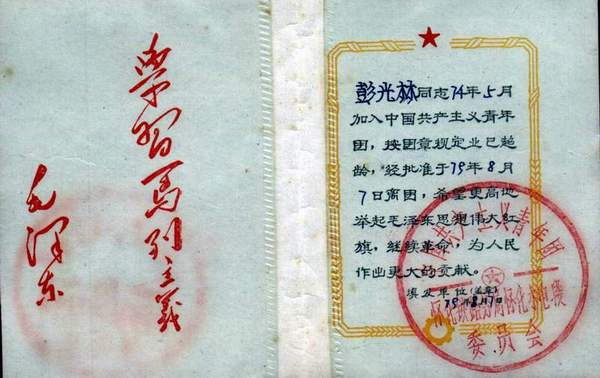 學習馬列主義
毛澤东
彭光林同志74年5月
加入中国共产主义青年
团，按团章规定业已超
龄，经批准于79年8月
7日离团，希望更高地
举起毛泽东思想伟大红
旗，继续革命，为人民
作出更大的贡献。
填发单位(盖章)
79年8月7日
共产主义青年团
怀化铁路分局怀化电段
委员会